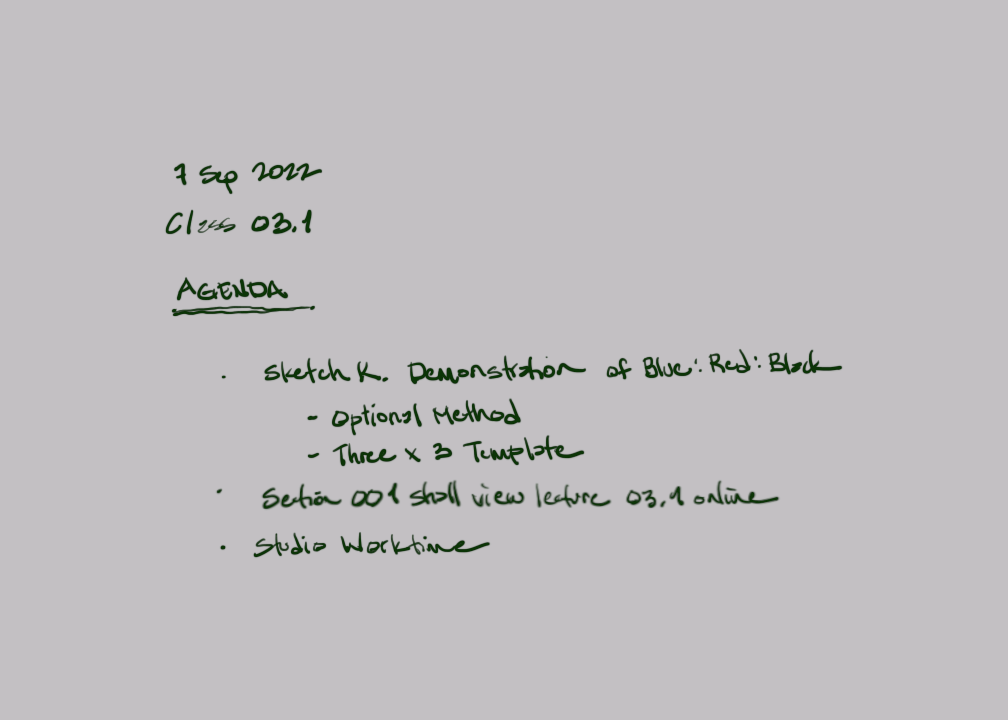 7 Sep 2022
Class 03.1
AGENDA
· Sketch K. Demonstration of Blue:Red:Black
- Optional Method
- Three x 3 Template
· Section 001 shall view lecture 03.1 online
· Studio Worktime